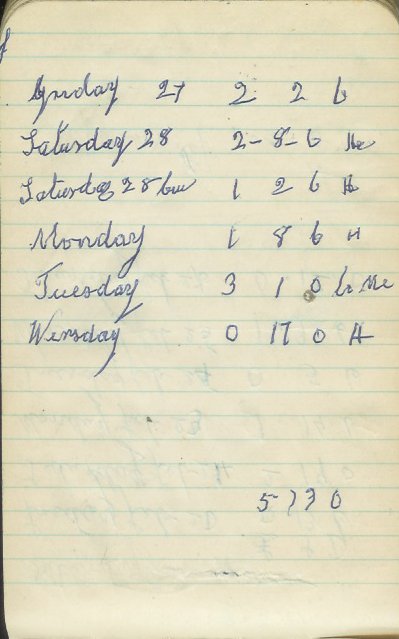 Friday 27 2 2 6
Saturday 28 2-8-6 He
Saturday 28 1 2 6 H
Monday 1 8 6 H
Tuesday 3 1 0 Me
Wensday 0 17 0 H
5 7 3 0